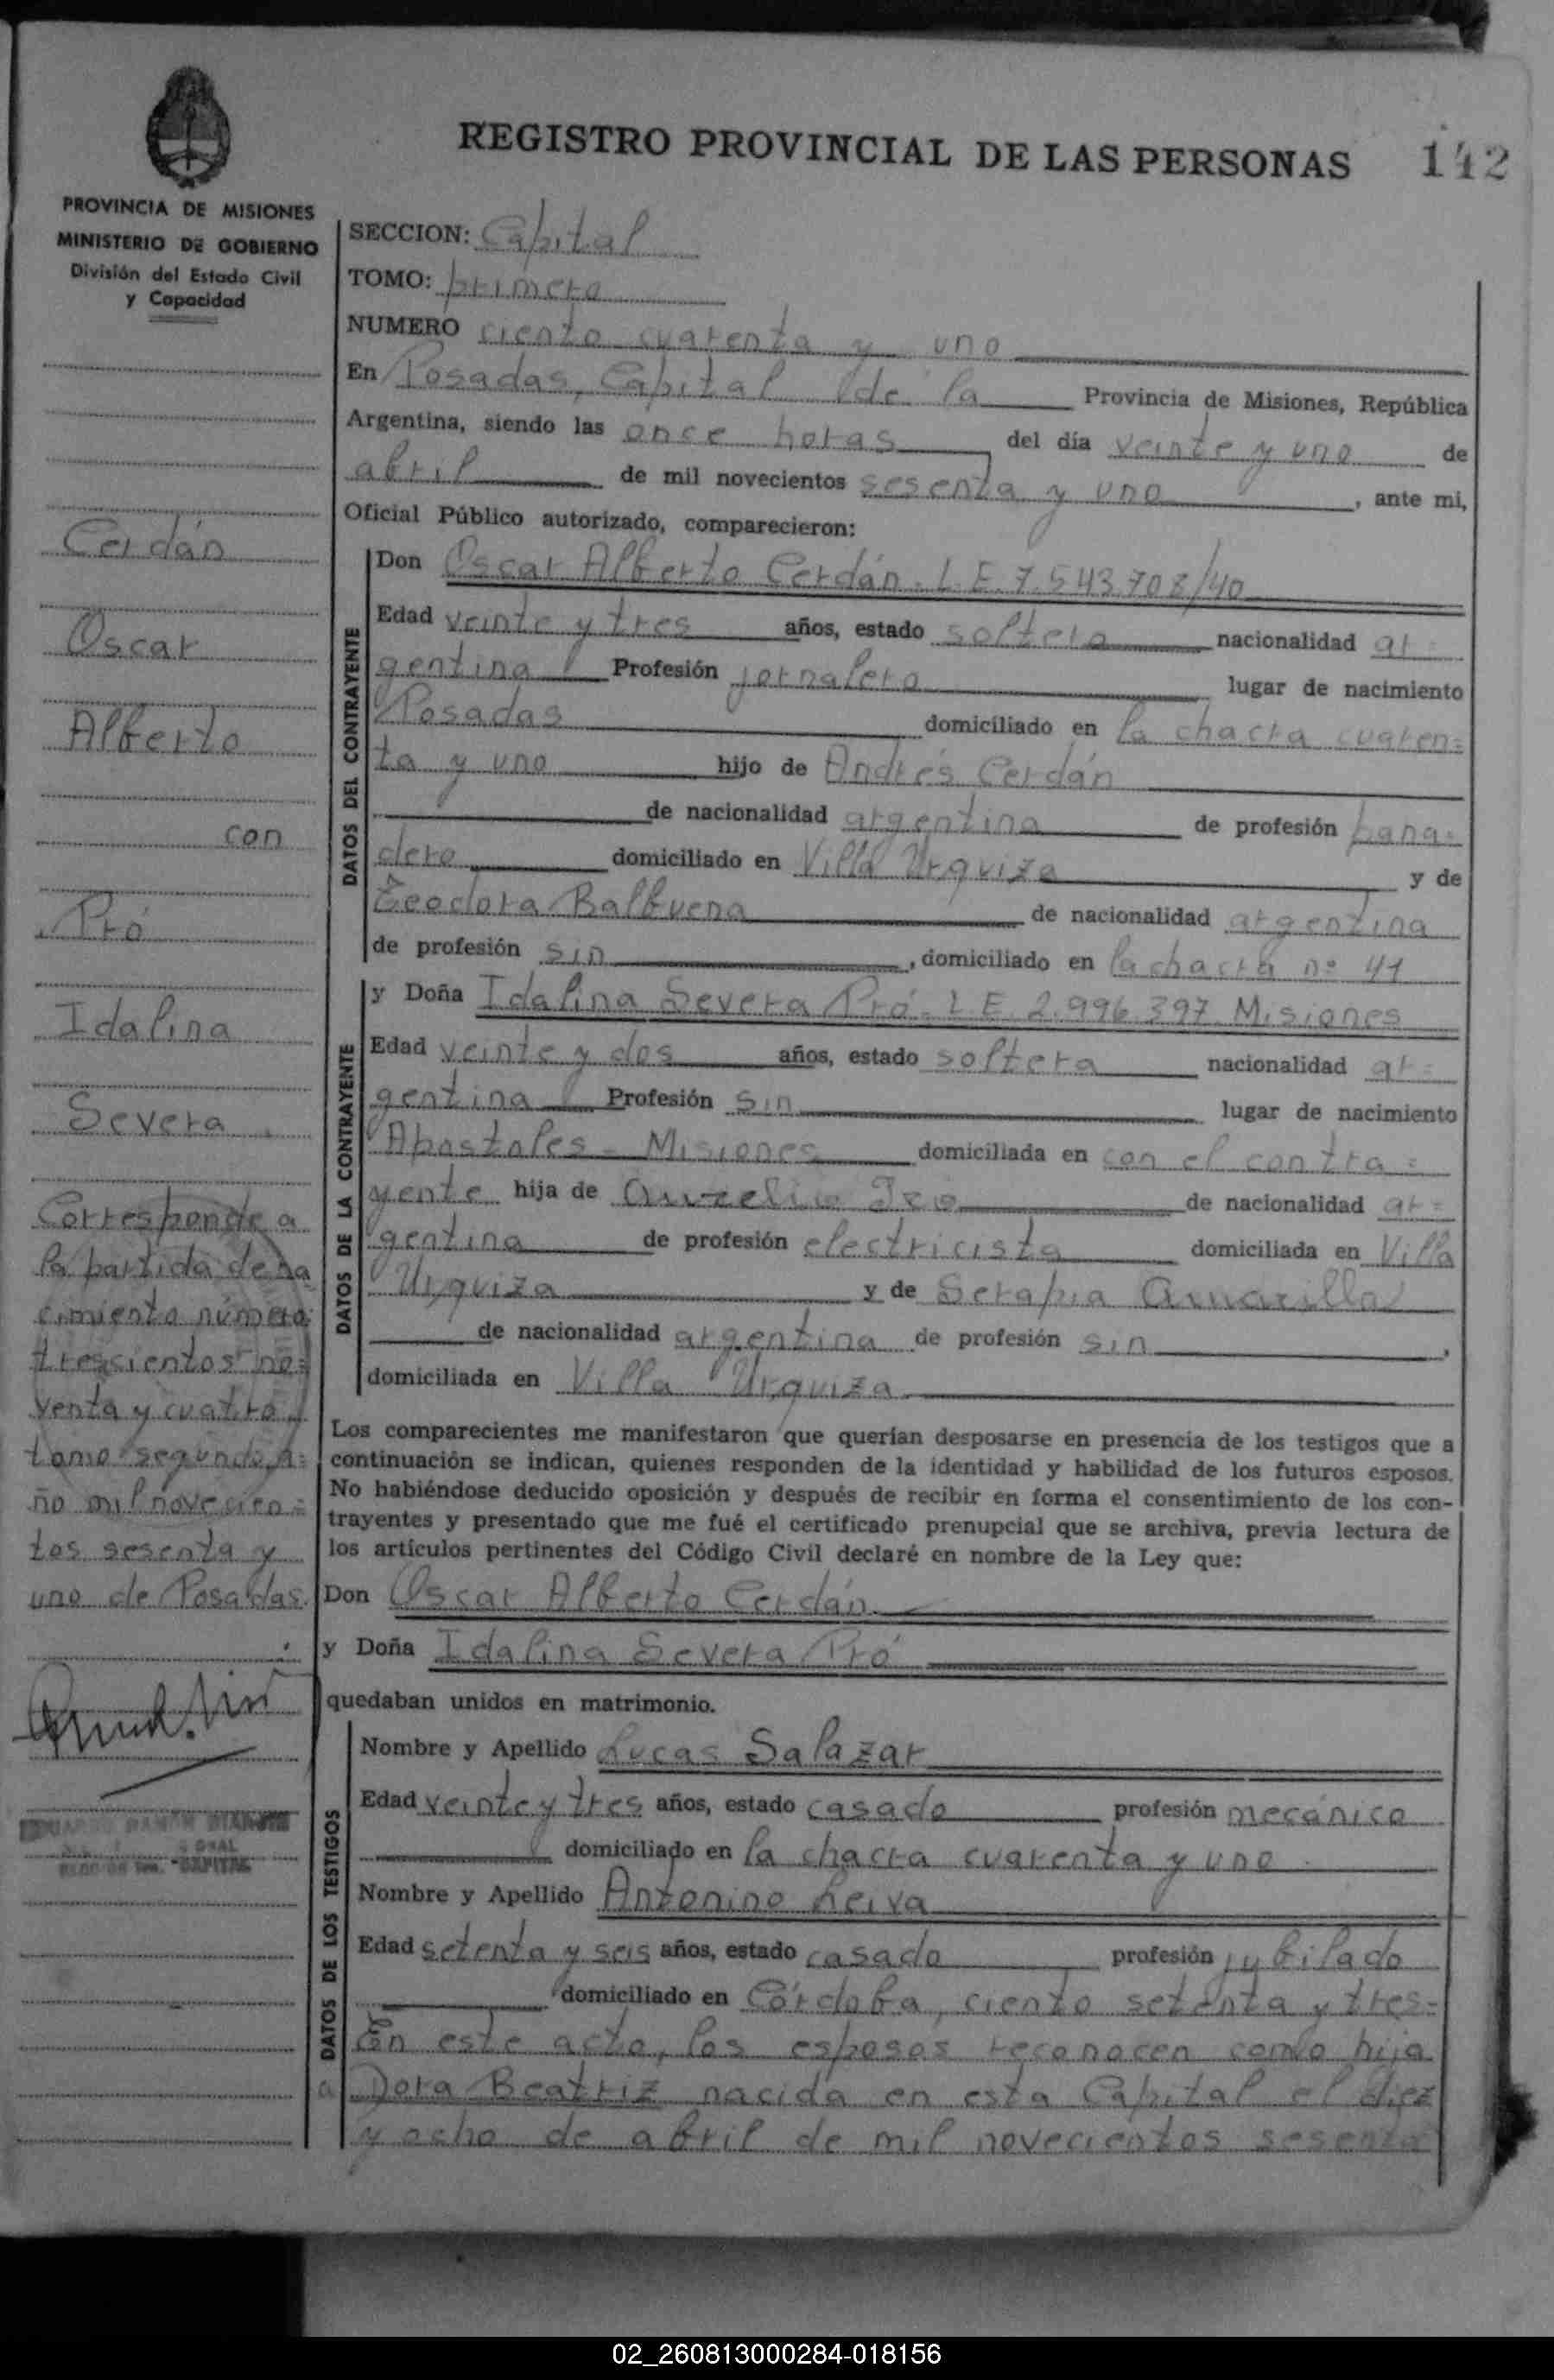 REGISTRO PROVINCIAL DE LAS PERSONAS 142
PROVINCIA DE MISIONES
MINISTERIO DE GOBIERNO
División del Estado Civil
y Capacidad
Cerdán
Oscar
Alberto
con
Pró
Idalina
Severa
Corresponde a
la partida de na
cimiento número
trescientos no=
venta y cuatro,
tomo segundo, a=
ño mil novecien=
tos sesenta y
uno de Posadas.
EDUARDO RAMÓN
CAPITAL
SECCION: Capital
TOMO: primero
NUMERO ciento cuarenta y uno
En Posadas, Capital de la Provincia de Misiones, República
Argentina, siendo las once horas del día veinte y uno de
abril de mil novecientos sesenta y uno, ante mi,
Oficial Público autorizado, comparecieron:
DATOS DEL CONTRAYENTE
Don Oscar Alberto Cerdán. L.E. 7.543.708/40
Edad veinte y tres años, estado soltero nacionalidad ar=
gentina Profesión jornalero lugar de nacimiento
Posadas domiciliado en la chacra cuaren=
ta y uno hijo de Andrés Cerdán
de nacionalidad argentina de profesión pana=
dero domiciliado en Villa Urquiza y de
Teodora Balbuena de nacionalidad argentina
de profesión sin, domiciliado en la chacra nº 41
DATOS DE LA CONTRAYENTE
y Doña Idalina Severa Pró. L.E. 2.996.397 Misiones
Edad veinte y dos años, estado soltera nacionalidad ar=
gentina Profesión sin lugar de nacimiento
Apostoles - Misiones domiciliada en con el contra=
yente hija de Aurelio Pró de nacionalidad ar=
gentina de profesión electricista domiciliada en Villa
Urquiza y de Serapia Amarilla
de nacionalidad argentina de profesión sin,
domiciliada en Villa Urquiza
Los comparecientes me manifestaron que querían desposarse en presencia de los testigos que a
continuación se indican, quienes responden de la identidad y habilidad de los futuros esposos.
No habiéndose deducido oposición y después de recibir en forma el consentimiento de los con-
trayentes y presentado que me fué el certificado prenupcial que se archiva, previa lectura de
los artículos pertinentes del Código Civil declaré en nombre de la Ley que:
Don Oscar Alberto Cerdán
y Doña Idalina Severa Pró
quedaban unidos en matrimonio.
DATOS DE LOS TESTIGOS
Nombre y Apellido Lucas Salazar
Edad veinte y tres años, estado casado profesión mecánico
domiciliado en la chacra cuarenta y uno
Nombre y Apellido Antonino Leiva
Edad setenta y seis años, estado casado profesión jubilado
domiciliado en Córdoba, ciento setenta y tres=
En este acto, los esposos reconocen como hija
a Dora Beatriz nacida en esta Capital el diez
y ocho de abril de mil novecientos sesenta
02_260813000284-018156